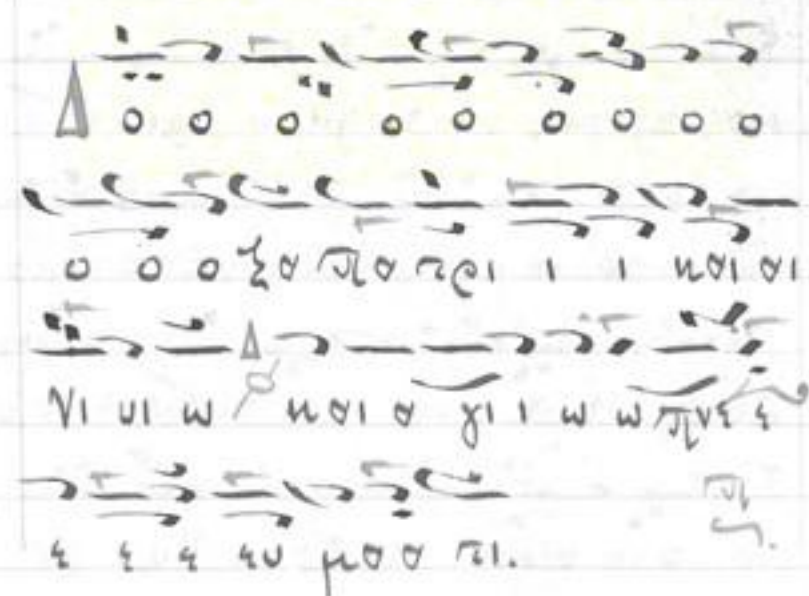 Δ ο ο ο ο ο ο ο ο ο
ο ο ο ξα πα τρι ι ι και αι
υι υι ω και α γι ι ω ω πνε ε
ε ε ε ευ μα α τι.